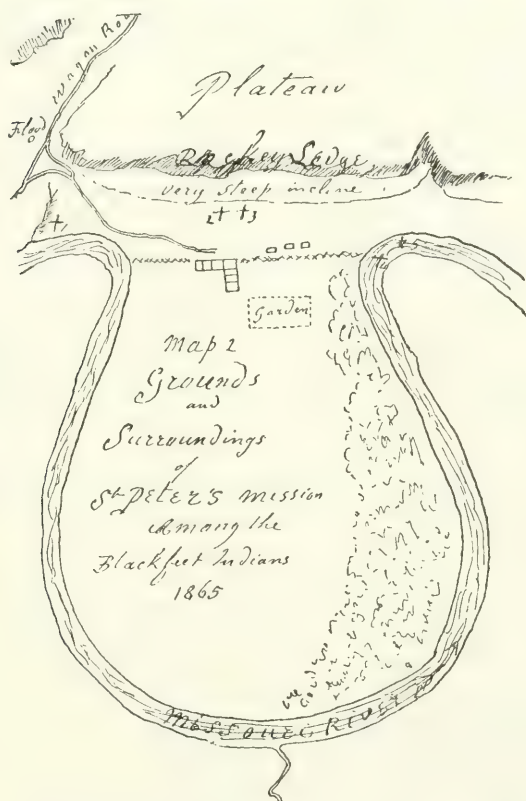 Wagon Road
Plateau
Floyd
Rockey Ledge
very steep incline
†1
2† †3
5
Garden
Map 2
Grounds
and
Surroundings
of
St Peter's Mission
Among the
Blackfeet Indians
1865
Missouri River